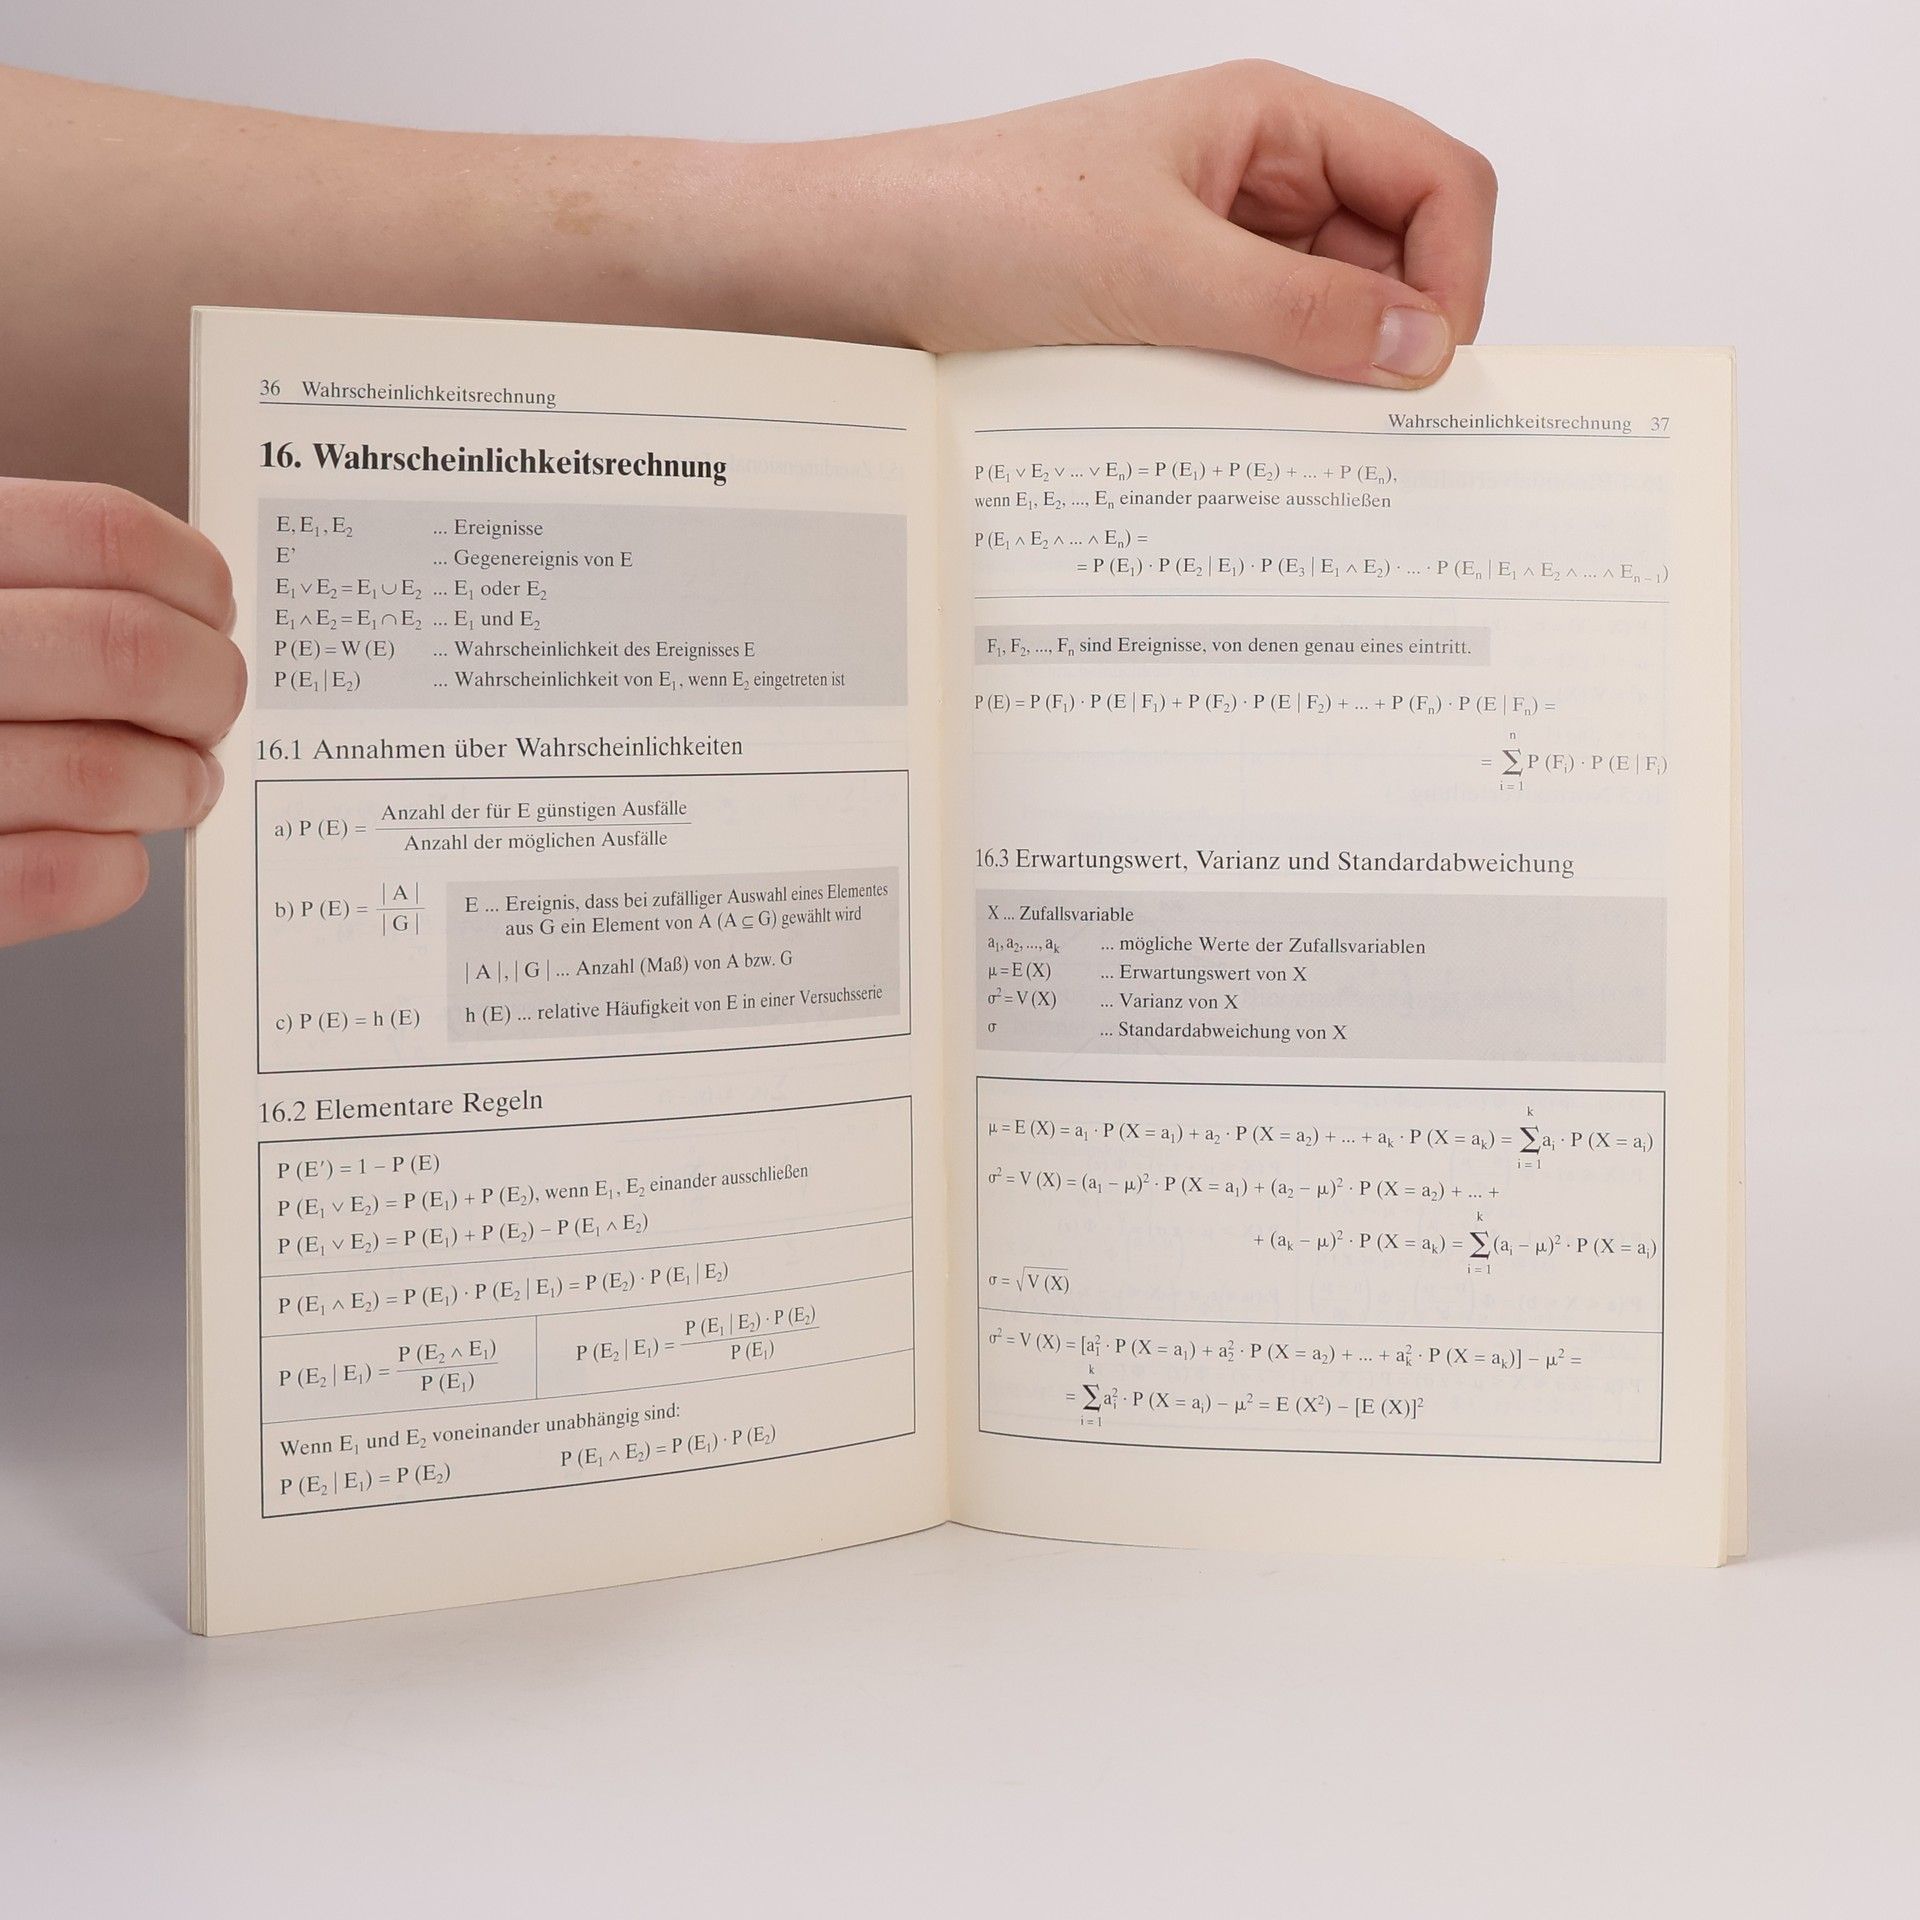 36 Wahrscheinlichkeitsrechnung
16. Wahrscheinlichkeitsrechnung
E, E₁, E₂ ... Ereignisse
E’ ... Gegenereignis von E
E₁ ∨ E₂ = E₁ ∪ E₂ ... E₁ oder E₂
E₁ ∧ E₂ = E₁ ∩ E₂ ... E₁ und E₂
P (E) = W (E) ... Wahrscheinlichkeit des Ereignisses E
P (E₁ | E₂) ... Wahrscheinlichkeit von E₁, wenn E₂ eingetreten ist
16.1 Annahmen über Wahrscheinlichkeiten
a) P (E) = Anzahl der für E günstigen Ausfälle
Anzahl der möglichen Ausfälle
b) P (E) = | A | / | G |
E ... Ereignis, dass bei zufälliger Auswahl eines Elementes
aus G ein Element von A (A ⊆ G) gewählt wird
| A |, | G | ... Anzahl (Maß) von A bzw. G
c) P (E) = h (E) h (E) ... relative Häufigkeit von E in einer Versuchsserie
16.2 Elementare Regeln
P (E′) = 1 − P (E)
P (E₁ ∨ E₂) = P (E₁) + P (E₂), wenn E₁, E₂ einander ausschließen
P (E₁ ∨ E₂) = P (E₁) + P (E₂) − P (E₁ ∧ E₂)
P (E₁ ∧ E₂) = P (E₁) · P (E₂ | E₁) = P (E₂) · P (E₁ | E₂)
P (E₂ | E₁) = P (E₂ ∧ E₁) / P (E₁) P (E₂ | E₁) = P (E₁ | E₂) · P (E₂) / P (E₁)
Wenn E₁ und E₂ voneinander unabhängig sind:
P (E₂ | E₁) = P (E₂) P (E₁ ∧ E₂) = P (E₁) · P (E₂)
Wahrscheinlichkeitsrechnung 37
P (E₁ ∨ E₂ ∨ ... ∨ Eₙ) = P (E₁) + P (E₂) + ... + P (Eₙ),
wenn E₁, E₂, ..., Eₙ einander paarweise ausschließen
P (E₁ ∧ E₂ ∧ ... ∧ Eₙ) =
= P (E₁) · P (E₂ | E₁) · P (E₃ | E₁ ∧ E₂) · ... · P (Eₙ | E₁ ∧ E₂ ∧ ... ∧ Eₙ₋₁)
F₁, F₂, ..., Fₙ sind Ereignisse, von denen genau eines eintritt.
P (E) = P (F₁) · P (E | F₁) + P (F₂) · P (E | F₂) + ... + P (Fₙ) · P (E | Fₙ) =
n
= ∑ P (Fᵢ) · P (E | Fᵢ)
i = 1
16.3 Erwartungswert, Varianz und Standardabweichung
X ... Zufallsvariable
a₁, a₂, ..., aₖ ... mögliche Werte der Zufallsvariablen
μ = E (X) ... Erwartungswert von X
σ² = V (X) ... Varianz von X
σ ... Standardabweichung von X
k
μ = E (X) = a₁ · P (X = a₁) + a₂ · P (X = a₂) + ... + aₖ · P (X = aₖ) = ∑ aᵢ · P (X = aᵢ)
i = 1
σ² = V (X) = (a₁ − μ)² · P (X = a₁) + (a₂ − μ)² · P (X = a₂) + ... +
k
+ (aₖ − μ)² · P (X = aₖ) = ∑ (aᵢ − μ)² · P (X = aᵢ)
i = 1
σ = √V (X)
σ² = V (X) = [a₁² · P (X = a₁) + a₂² · P (X = a₂) + ... + aₖ² · P (X = aₖ)] − μ² =
k
= ∑ aᵢ² · P (X = aᵢ) − μ² = E (X²) − [E (X)]²
i = 1